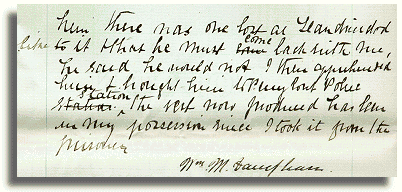 him there was one lost at Llandrindod
to it & that he must come back with me,
he said he would not I then apprehended
him & brought him to Penybont Police
station the vest now produced has been
in my possession since I took it from the
prisoner
Wm. M.